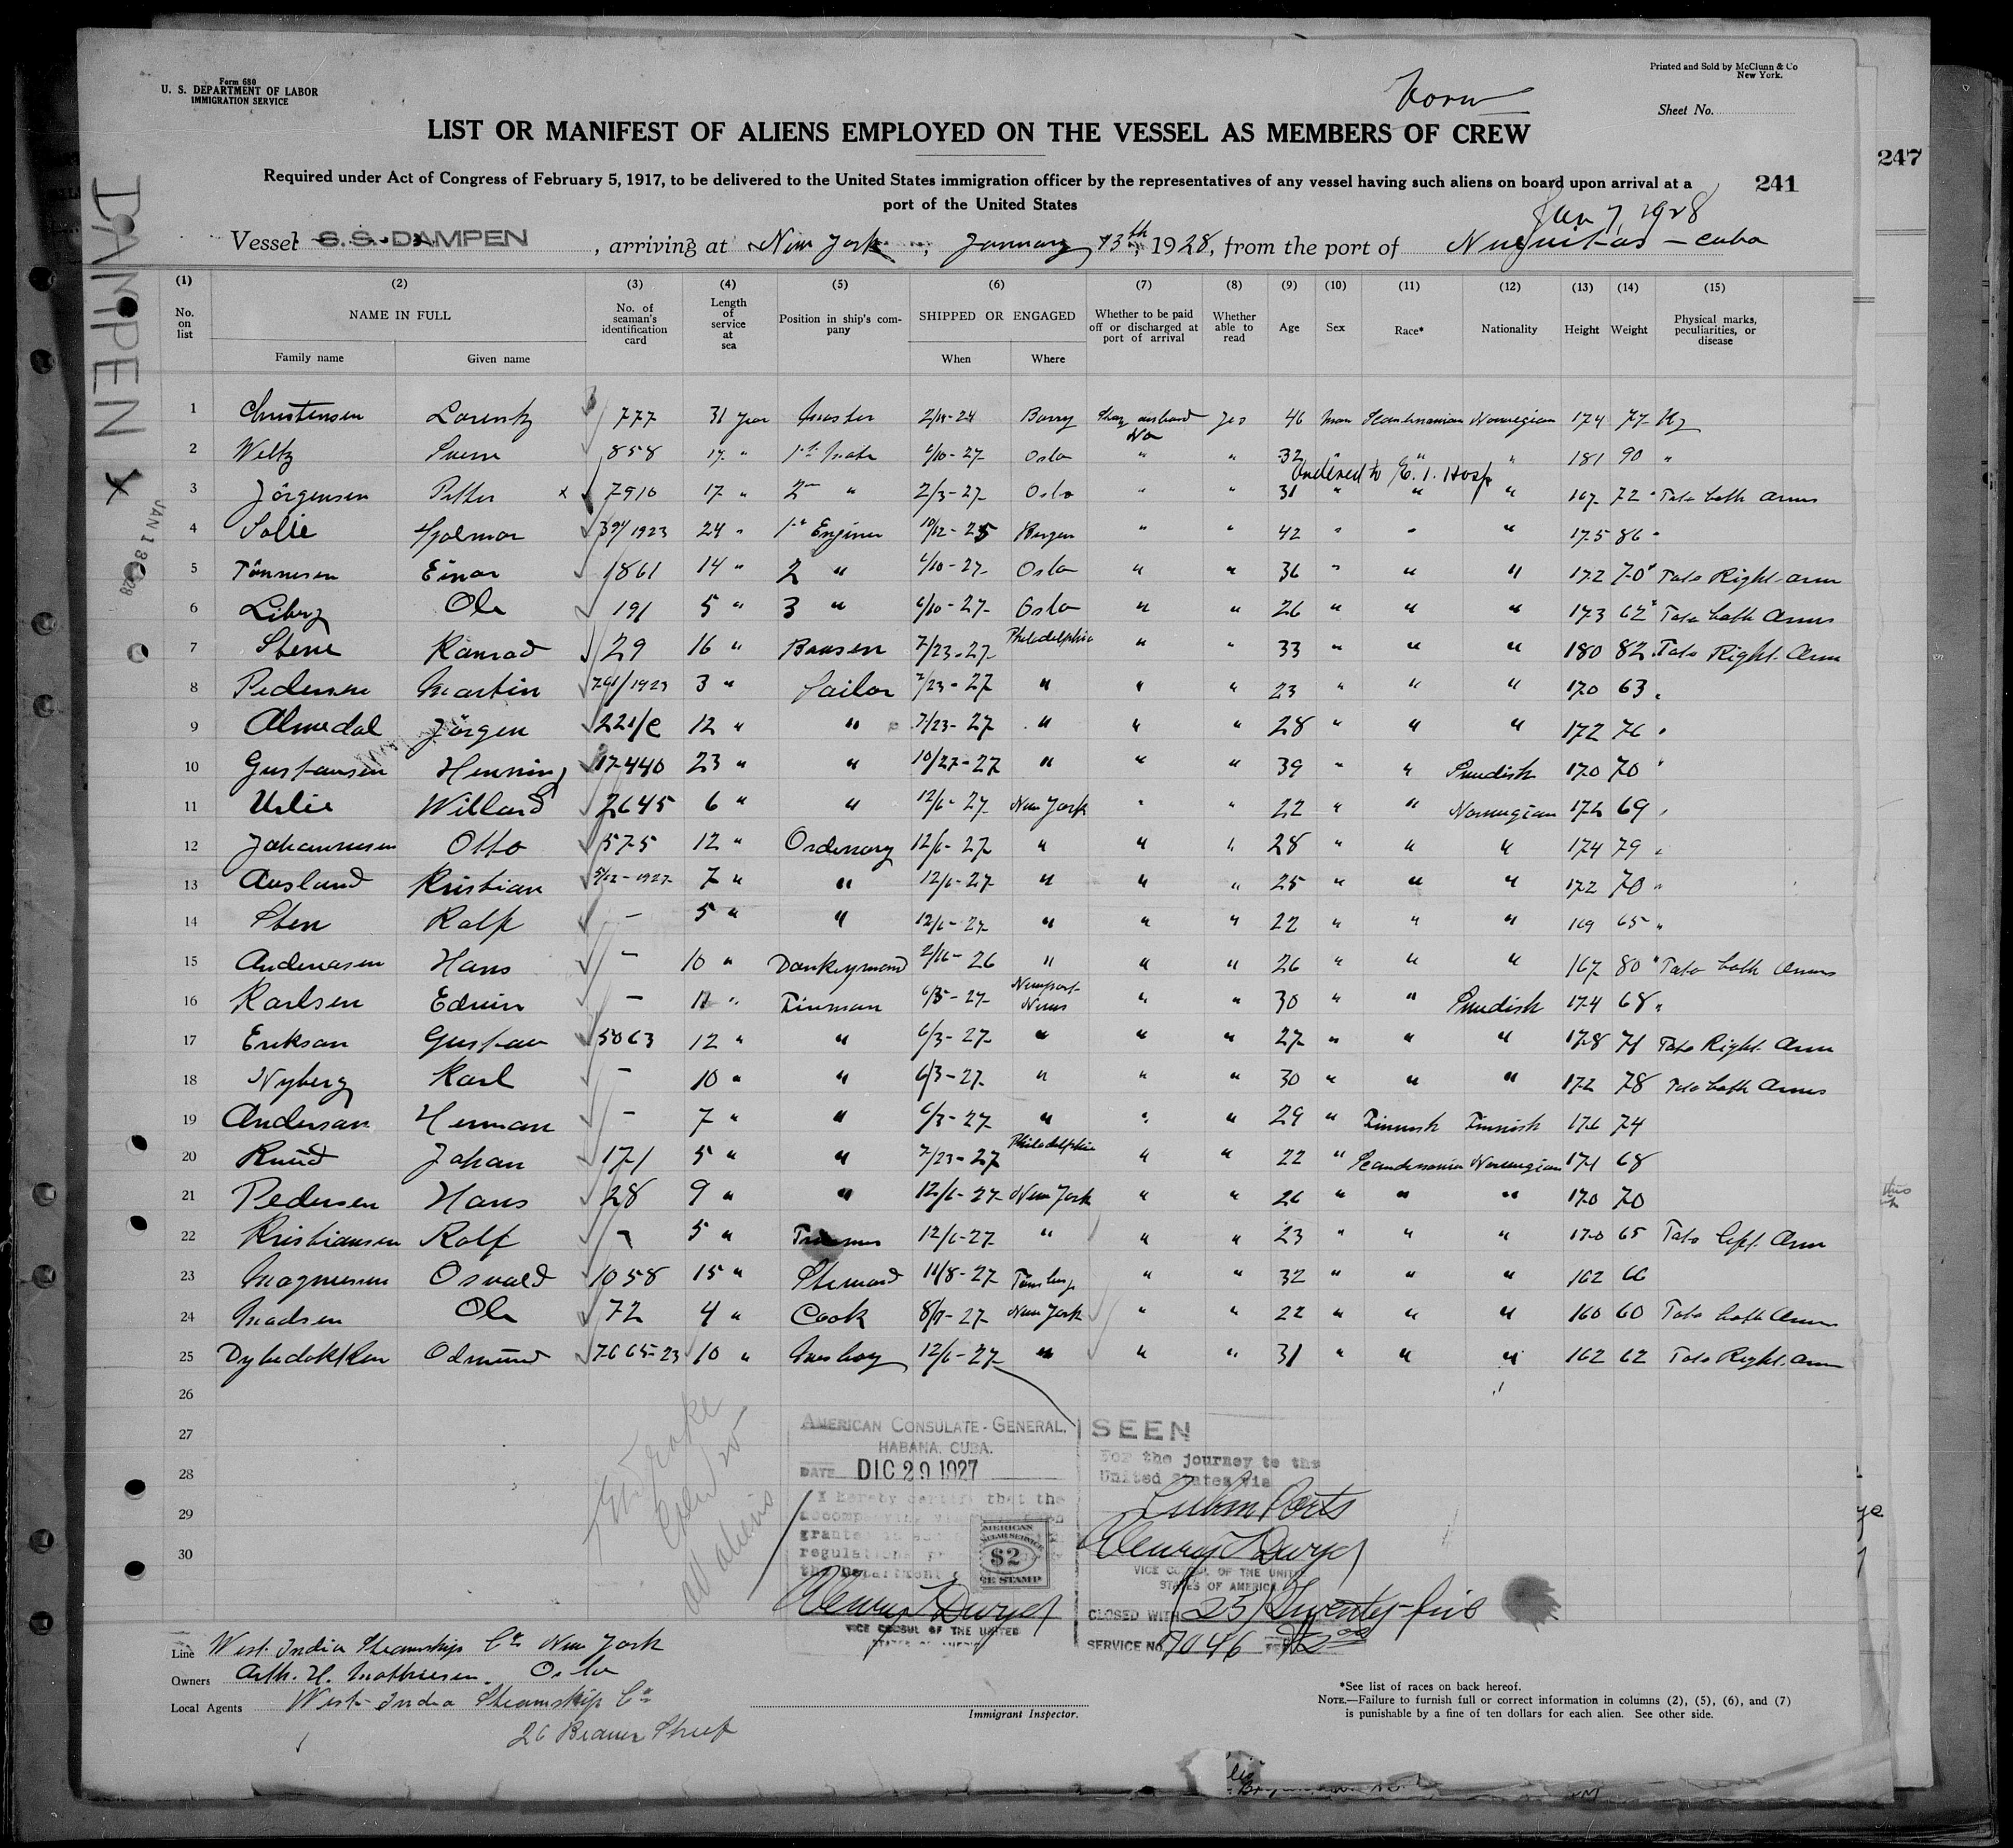 Form 680
U. S. DEPARTMENT OF LABOR
IMMIGRATION SERVICE
Printed and Sold by McClunn & Co
New York.
Sheet No.
LIST OR MANIFEST OF ALIENS EMPLOYED ON THE VESSEL AS MEMBERS OF CREW
Required under Act of Congress of February 5, 1917, to be delivered to the United States immigration officer by the representatives of any vessel having such aliens on board upon arrival at a
port of the United States
241
247
Jan 7, 1928
Vessel S.S. DAMPEN, arriving at New York, January 13th, 1928, from the port of Nuevitas - Cuba
DAMPEN X
(1) (2) (3) (4) (5) (6) (7) (8) (9) (10) (11) (12) (13) (14) (15)
No. on list NAME IN FULL No. of seaman's identification card Length of service at sea Position in ship's company SHIPPED OR ENGAGED Whether to be paid off or discharged at port of arrival Whether able to read Age Sex Race* Nationality Height Weight Physical marks, peculiarities, or disease
Family name Given name When Where
1 Christensen Lorentz 777 31 year Master 2/19-24 Barry No Yes 46 Man Scandinavian Norwegian 174 77
2 Weltz Sverre 858 17 " 1st Mate 6/10-27 Oslo " " 32 " " " 181 90 "
Ordered to E. I. Hosp.
3 Jörgensen Petter x 7910 17 " 2nd " 2/3-27 Oslo " " 31 " " " 167 72 " Tato both Arms
4 Solie Hjalmar 394/1923 24 " 1st Enginer 10/12-25 Bergen " " 42 " " " 175 86 "
5 Tönnesen Einar 1861 14 " 2 " 6/10-27 Oslo " " 36 " " " 172 70 " Tato Right arm
6 Liberg Ole 191 5 " 3 " 6/10-27 Oslo " " 26 " " " 173 62 " Tato both Arms
7 Stene Konrad 29 16 " Boasen 7/23-27 Philadelphia " " 33 " " " 180 82 " Tato Right Arm
8 Pedersen Martin 791/1923 3 " Sailor 7/23-27 " " " 23 " " " 170 63 "
9 Almedal Jörgen 221/C 12 " " 7/23-27 " " " 28 " " " 172 76 "
10 Gustavsen Henning 17440 23 " " 10/27-27 " " " 39 " " Swedish 170 70 "
11 Uslie Willard 2645 6 " " 12/6-27 New York " " 22 " " Norwegian 172 69 "
12 Johannesen Otto 575 12 " Ordenary 12/6-27 " " " 28 " " " 174 79 "
13 Ausland Kristian 5/12-1927 7 " " 12/6-27 " " " 25 " " " 172 70 "
14 Sten Rolf - 5 " " 12/6-27 " " " 22 " " " 169 65 "
15 Andreasen Hans - 10 " Donkeymand 2/16-26 " " " 26 " " " 167 80 " Tato both Arms
16 Karlsen Edvin - 11 " Fireman 6/3-27 Newport News " " 30 " " Swedish 174 68 "
17 Erikson Gustav 5063 12 " " 6/3-27 " " " 27 " " " 178 71 Tato Right Arm
18 Nyberg Karl - 10 " " 6/3-27 " " " 30 " " " 172 78 Tato both Arms
19 Anderson Herman - 7 " " 6/3-27 " " " 29 " Finnish Finnish 176 74
20 Ruud Johan 171 5 " " 7/23-27 Philadelphia " " 22 " Scandinavian Norwegian 171 68
21 Pedersen Hans 28 9 " " 12/6-27 New York " " 26 " " " 170 70
22 Kristiansen Rolf - 5 " 12/6-27 " " " 23 " " " 170 65 Tato left Arm
23 Magnussen Osvald 1058 15 " Steward 11/8-27 Tönsberg " " 32 " " " 162 66
24 Madsen Ole 72 4 " Cook 8/9-27 New York " " 22 " " " 160 60 Tato both Arms
25 Odmund 7665-23 10 " Messboy 12/6-27 " " " 31 " " " 162 62 Tato Right Arm
26
27
28
29
30
AMERICAN CONSULATE-GENERAL,
HABANA, CUBA.
DATE DIC 29 1927
I hereby certify that the
accompanying
granted
regulations
the Department
AMERICAN
CONSULAR SERVICE
$2
FEE STAMP
VICE CONSUL OF THE UNITED
STATES OF AMERICA
SEEN
For the journey to the
United States via
Cuban Ports
VICE CONSUL OF THE UNITED
STATES OF AMERICA
CLOSED WITH 25 Twenty-five
SERVICE No. 7046 FEE $2.00
Line West India Steamship Co New York
Owners Arth. H. Mathiesen. Oslo
Local Agents West India Steamship Co
26 Beaver Street
Immigrant Inspector.
*See list of races on back hereof.
NOTE.—Failure to furnish full or correct information in columns (2), (5), (6), and (7)
is punishable by a fine of ten dollars for each alien. See other side.